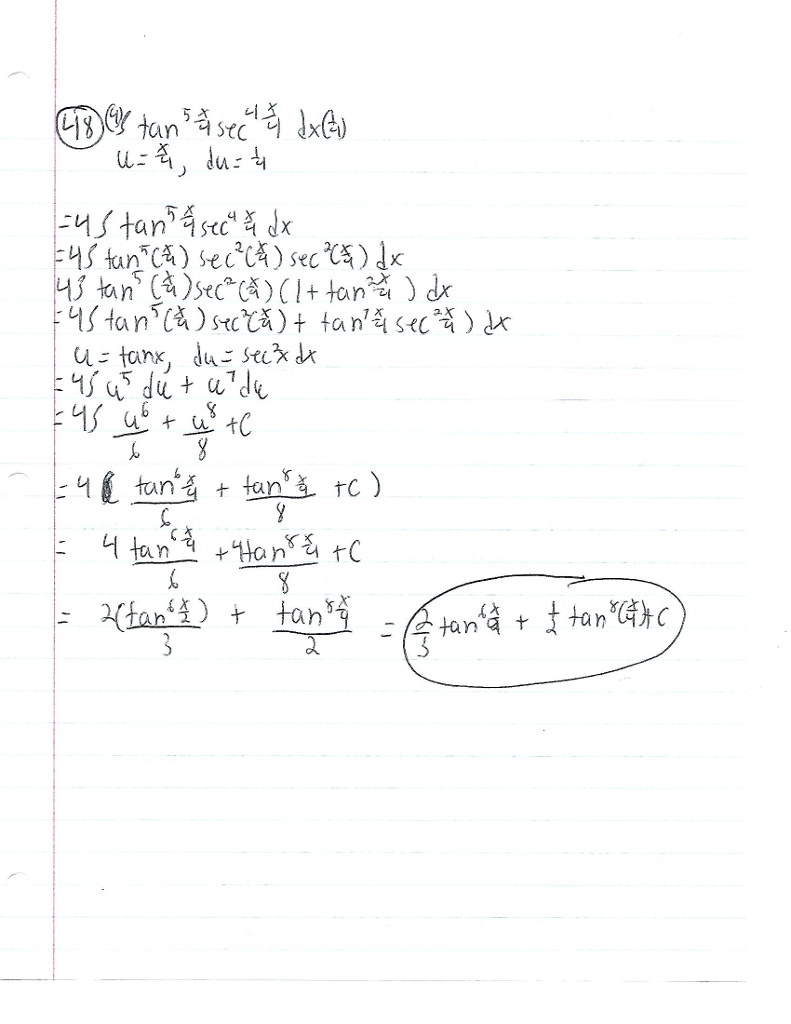 48 (4)∫ tan^5 x/4 sec^4 x/4 dx(1/4)
u = x/4, du = 1/4
= 4∫ tan^5 x/4 sec^4 x/4 dx
= 4∫ tan^5(x/4) sec^2(x/4) sec^2(x/4) dx
4∫ tan^5(x/4) sec^2(x/4) (1 + tan^2 x/4) dx
= 4∫ tan^5(x/4) sec^2(x/4) + tan^7 x/4 sec^2 x/4) dx
u = tanx, du = sec^2x dx
= 4∫ u^5 du + u^7 du
= 4∫ u^6/6 + u^8/8 + C
= 4( tan^6 x/4 /6 + tan^8 x/4 /8 + C)
= 4 tan^6 x/4 /6 + 4tan^8 x/4 /8 + C
= 2(tan^6 x/2)/3 + tan^8 x/4 /2 = 2/3 tan^6 x/4 + 1/2 tan^8(x/4)+C